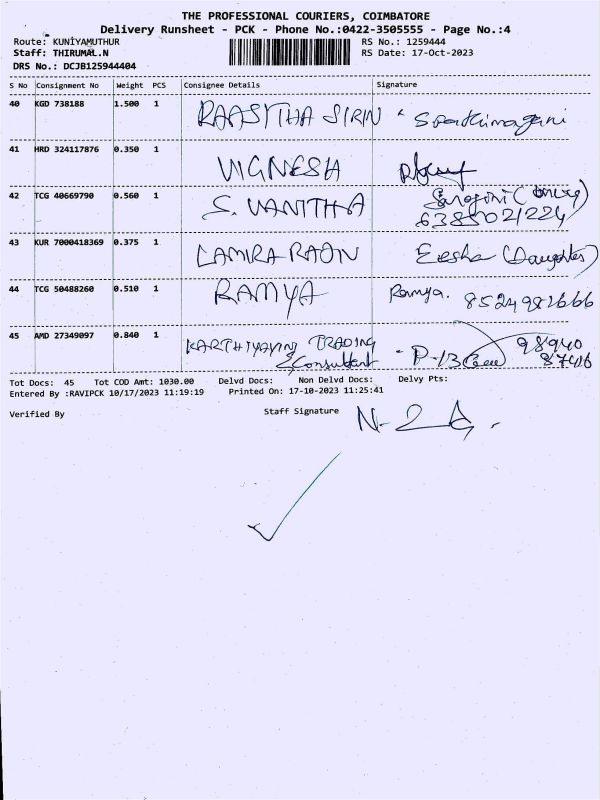 THE PROFESSIONAL COURIERS, COIMBATORE
Delivery Runsheet - PCK - Phone No.:0422-3505555 - Page No.:4
Route: KUNIYAMUTHUR RS No.: 1259444
Staff: THIRUMAL.N RS Date: 17-Oct-2023
DRS No.: DCJB125944404
S No Consignment No Weight PCS Consignee Details Signature
40 KGD 738188 1.500 1 RAASITHA SIRIN
41 HRD 324117876 0.350 1 VIGNESH
42 TCG 40669790 0.560 1 S. VANITHA
6385021224
43 KUR 7000418369 0.375 1 LAMIRA RAON Eesha (Daughter)
44 TCG 50488260 0.510 1 RAMYA Ramya.
45 AMD 27349097 0.840 1 KARTHIYAYINI TRADING 98940
& Consultant 87416
Tot Docs: 45 Tot COD Amt: 1030.00 Delvd Docs: Non Delvd Docs: Delvy Pts:
Entered By :RAVIPCK 10/17/2023 11:19:19 Printed On: 17-10-2023 11:25:41
Verified By Staff Signature